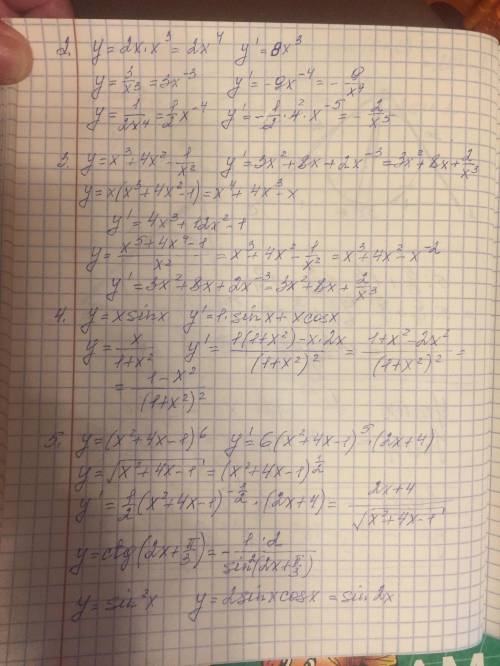 2. y=2x·x³=2x⁴ y'=8x³
y=3/x³=3x⁻³ y'=-9x⁻⁴=-9/x⁴
y=1/2x⁴=1/2x⁻⁴ y'=-1/2·4·x⁻⁵=-2/x⁵
3. y=x³+4x²-1/x² y'=3x²+8x+2x⁻³=3x²+8x+2/x³
y=x(x³+4x²-1)=x⁴+4x³-x
y'=4x³+12x²-1
y=(x⁵+4x⁴-1)/x²=x³+4x²-1/x²=x³+4x²-x⁻²
y'=3x²+8x+2x⁻³=3x²+8x+2/x³
4. y=xsinx y'=1·sinx+xcosx
y=x/(1+x²) y'=(1(1+x²)-x·2x)/(1+x²)²=(1+x²-2x²)/(1+x²)²=
=(1-x²)/(1+x²)²
5. y=(x²+4x-1)⁶ y'=6(x²+4x-1)⁵·(2x+4)
y=√(x²+4x-1)=(x²+4x-1)^(1/2)
y'=1/2(x²+4x-1)^(-1/2)·(2x+4)=(2x+4)/√(x²+4x-1)
y=ctg(2x+π/3)=(1·2)/sin²(2x+π/3)
y=sin²x y=2sinxcosx=sin2x